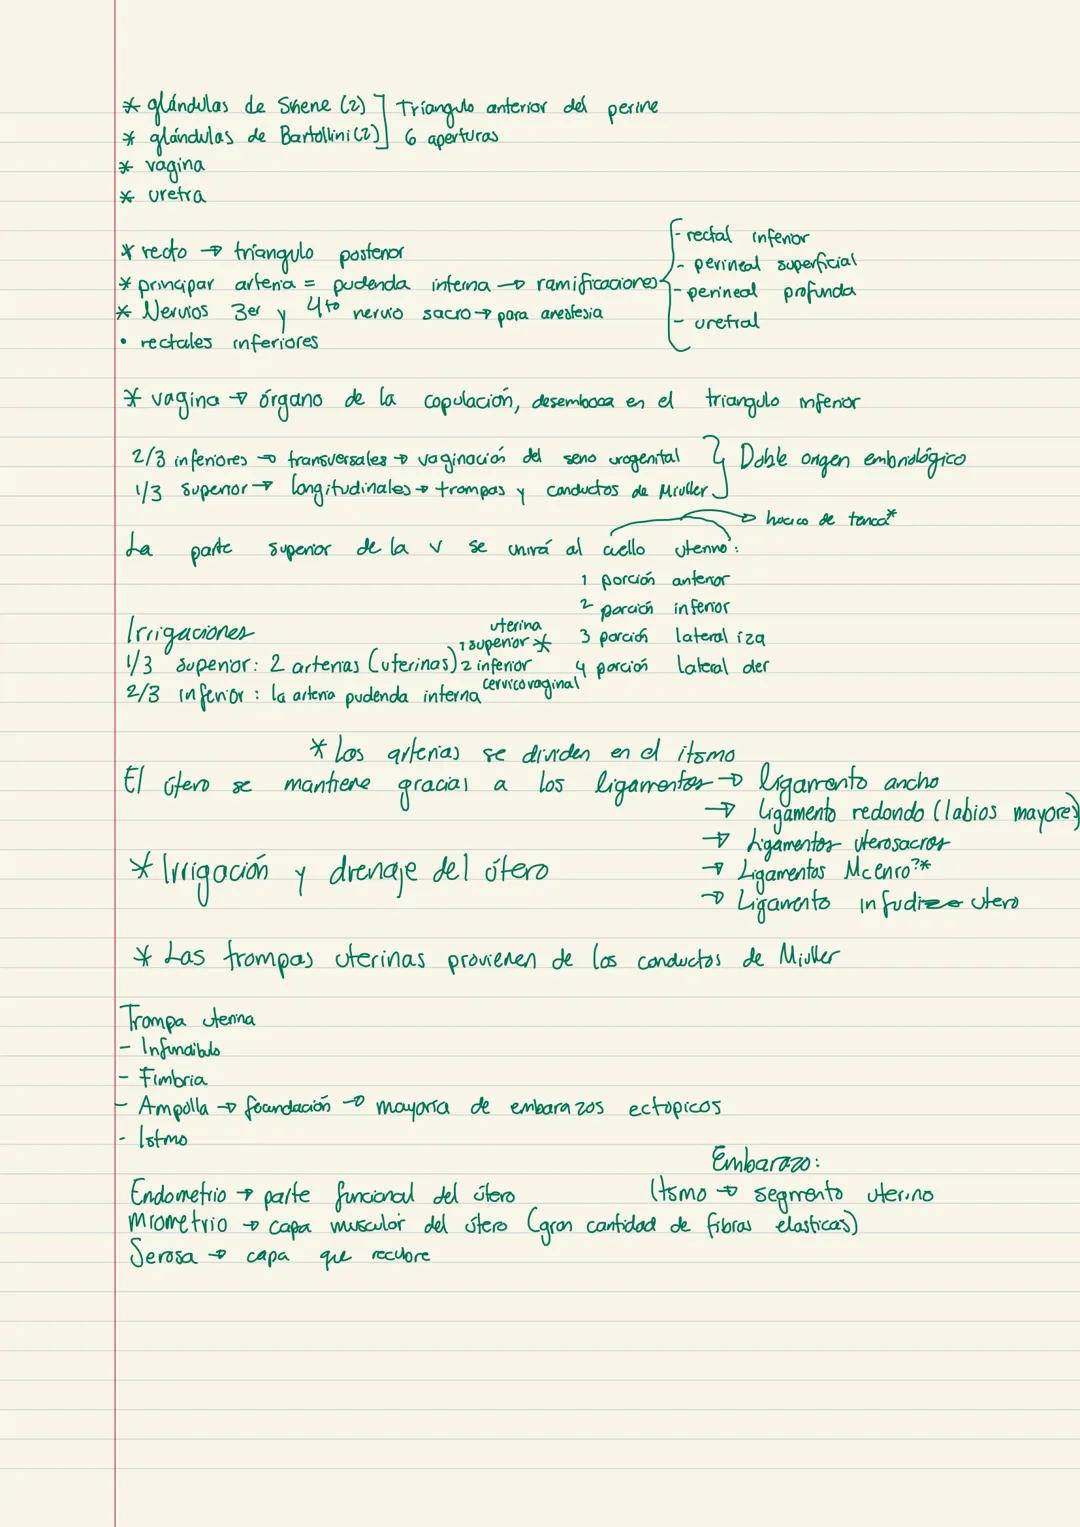 * glándulas de Skene (2) ] Triangulo anterior del perine
* glándulas de Bartollini (2) ] 6 aperturas
* vagina
* uretra
* recto → triangulo posterior
* principar arteria = pudenda interna → ramificaciones
- rectal inferior
- perineal superficial
- perineal profunda
- uretral
* Nervios 3er y 4to nervio sacro → para anestesia
• rectales inferiores
* vagina → órgano de la copulación, desemboca en el triangulo inferior
2/3 inferiores → transversales → vaginación del seno urogenital } Doble origen embriológico
1/3 superior → longitudinales → trompas y conductos de Miuller
→ hocico de tenca*
La parte superior de la v se unirá al cuello uterino:
1 porción anterior
2 porción inferior
3 porción lateral izq
4 porción lateral der
Irrigaciones
1/3 superior: 2 arterias (uterinas)
uterina
1 superior *
2 inferior
cervicovaginal
2/3 inferior: la arteria pudenda interna
* Las arterias se dividen en el itsmo
El útero se mantiene gracias a los ligamentos → ligamento ancho
→ Ligamento redondo (labios mayores)
→ Ligamentos uterosacros
→ Ligamentos Mcenro?*
→ Ligamento utero
* Irrigación y drenaje del útero
* Las trompas uterinas provienen de los conductos de Miuller
Trompa uterina
- Infundibulo
- Fimbria
- Ampolla → fecundación → mayoría de embarazos ectopicos
- Istmo
Embarazo:
Itsmo → segmento uterino
Endometrio → parte funcional del útero
Miometrio → capa muscular del útero (gran cantidad de fibras elasticas)
Serosa → capa que recubre